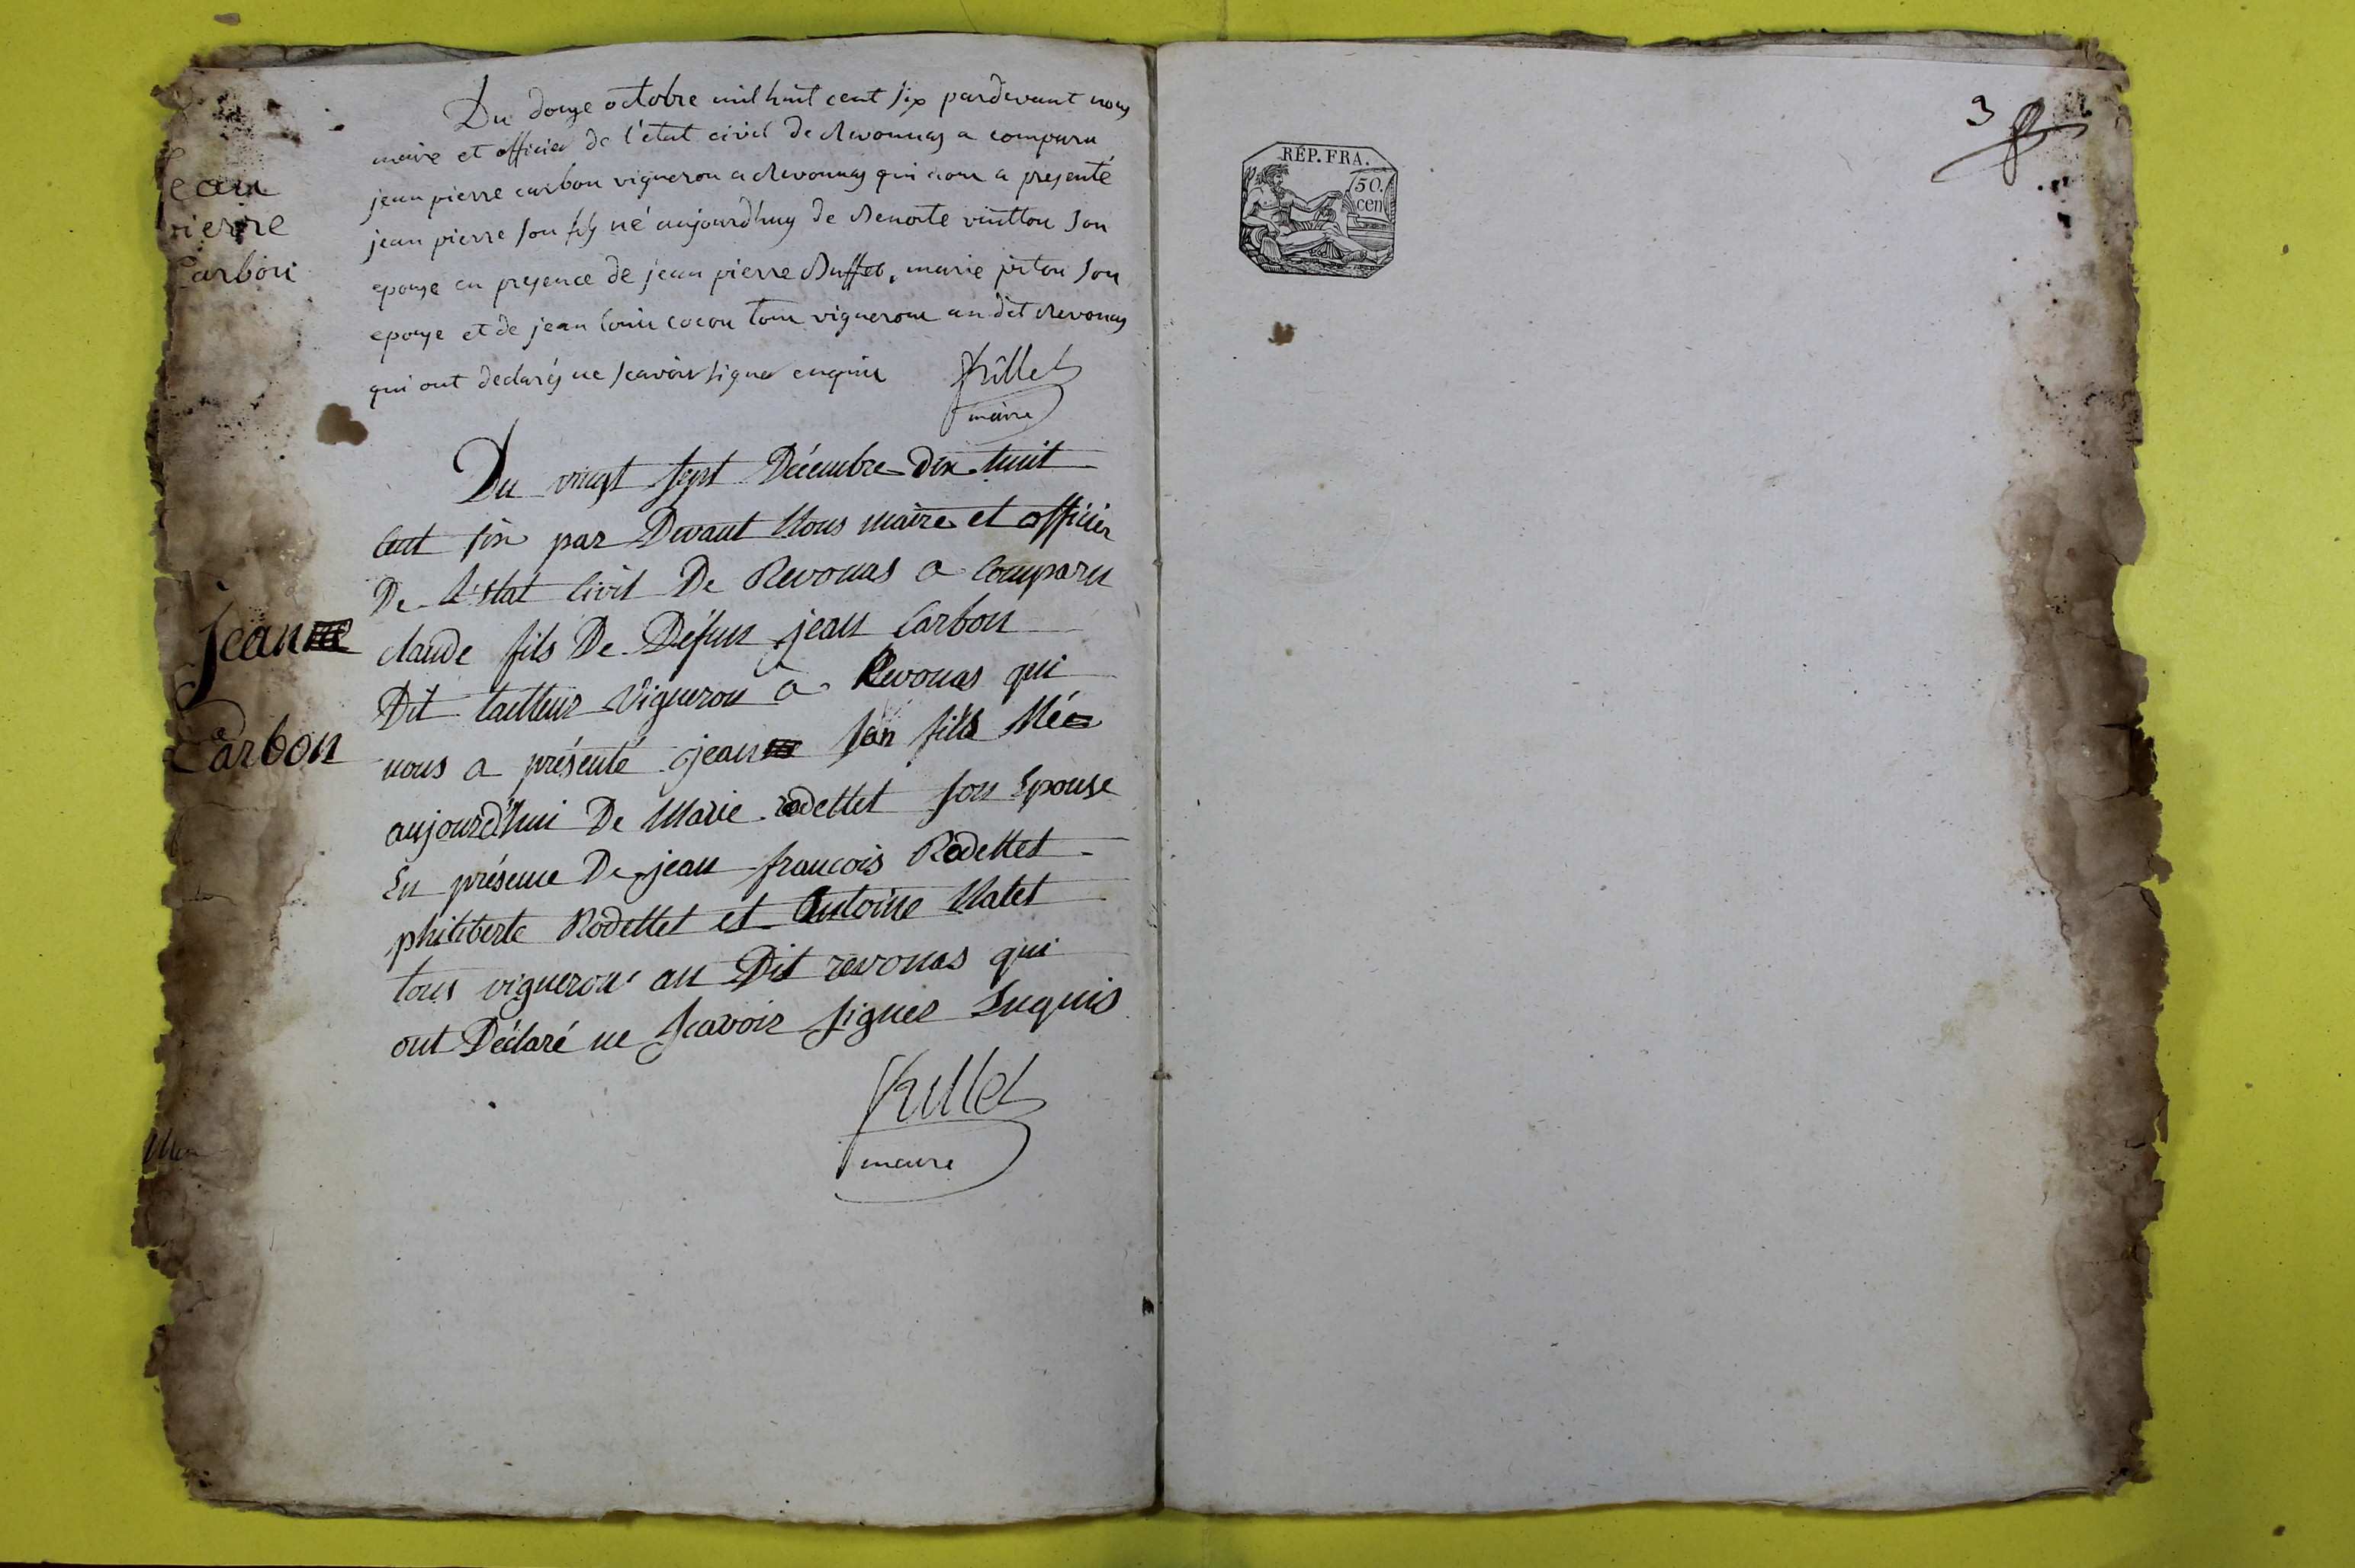 Jean
pierre
Carbon
Du douze octobre mil huit cent six pardevant nous
maire et officier de l'état civil de Revonnas a comparu
jean pierre carbon vigneron a Revonnas qui nous a presenté
jean pierre son fils né aujourd'huy de Benoite vuitton son
epouse en presence de jean pierre Buffet, marie piton son
epouse et de jean louis cocon tous vignerons au dit Revonas
qui ont declarés ne scavoir signer enquis
maire
Jean
Carbon
Du vingt sept Décembre dix huit
Cent six par Devant Nous maire et officier
De L'Etat Civil De Revonas a Comparu
claude fils De Défun jean Carbon
Dit tailleur Vigneron a Revonas qui
nous a présenté jean son fils Né
aujourd'hui De Marie rodettet son Epouse
En présence De jean francois Rodettet
philiberte Rodettet et Antoine Natet
tous vigneron au Dit revonas qui
ont Déclaré ne scavoir signer Enquis
maire
3
RÉP. FRA.
50.
cen